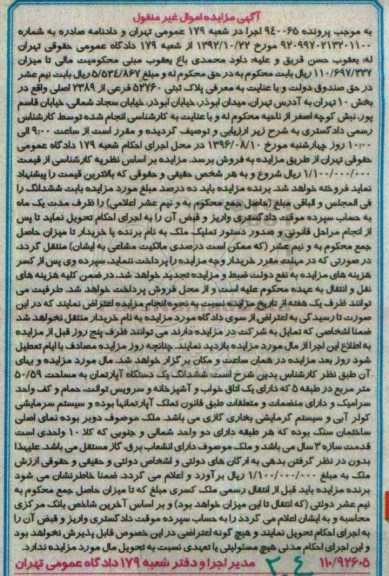 آگهی مزایده اموال غیر منقول
به موجب پرونده ۹۴۰۰۶۵ اجرا در شعبه ۱۷۹ عمومی تهران و دادنامه صادره به شماره
۹۲۰۹۹۷۰۲۱۳۲۰۱۱۰۰ مورخ ۱۳۹۲/۱۰/۲۲ از شعبه ۱۷۹ دادگاه عمومی حقوقی تهران
له: یعقوب حسن قریق و علیه: داود محمدی باغ یعقوب مبنی محکومیت مالی تا میزان
۱۱۰/۶۹۷/۳۳۷ ریال بابت محکوم به در حق محکوم له و مبلغ ۵/۵۳۴/۸۶۷ ریال بابت نیم عشر
در حق صندوق دولت و با عنایت به معرفی پلاک ثبتی ۵۲۷۶۰ فرعی از ۲۳۸۹ اصلی واقع در
بخش ۱۰ تهران به آدرس تهران، میدان ابوذر، خیابان ابوذر، خیابان سجاد شمالی، خیابان قاسم
پور، نبش کوچه اصغر از ناحیه محکوم له و با عنایت به کارشناسی انجام شده توسط کارشناس
رسمی دادگستری به شرح زیر ارزیابی و توصیف گردیده و مقرر است از ساعت ۹:۰۰ الی
۱۰:۰۰ روز چهارشنبه مورخ ۱۳۹۶/۰۸/۱۰ در محل اجرای احکام شعبه ۱۷۹ دادگاه عمومی
حقوقی تهران از طریق مزایده به فروش برسد. مزایده بر اساس نظریه کارشناسی از قیمت
۱/۱۰۰/۰۰۰/۰۰۰ ریال شروع و به هر شخص حقیقی و حقوقی که بالاترین قیمت را پیشنهاد
نماید فروخته خواهد شد. برنده مزایده باید ده درصد مبلغ مورد مزایده بابت ششدانگ را
فی المجلس و الباقی مبلغ (حاصل جمع محکوم به و نیم عشر اعلامی) را ظرف مدت یک ماه
به حساب سپرده موقت دادگستری واریز و قبض آن را به اجرای احکام تحویل نماید تا پس
از انجام مراحل قانونی و صدور دستور تملیک ملک به نام برنده یا خریدار تا میزان حاصل
جمع محکوم به و نیم عشر (که ممکن است درصدی مالکیت مشاعی به ایشان) منتقل گردد،
در صورتی که در مهلت مقرر خریدار وجه مزایده را پرداخت ننماید، سپرده وی پس از کسر
هزینه های مزایده به نفع دولت ضبط و مزایده تجدید خواهد شد. در ضمن کلیه هزینه های
نقل و انتقال به عهده محکوم علیه است و از محل فروش پرداخت خواهد شد. طرفیت می
توانند ظرف یک هفته از تاریخ مزایده نسبت به نحوه انجام مزایده اعتراض نمایند که در این
صورت تا رسیدگی به اعتراض از سوی دادگاه مورد مزایده به نام خریدار منتقل نخواهد شد
ضمنا اشخاصی که تمایل به شرکت در مزایده دارند می توانند ظرف پنج روز قبل از مزایده
به اطلاع این اجرا از مال مورد مزایده بازدید نمایند. چنانچه روز مزایده مصادف با ایام تعطیل
شود روز بعد مزایده در همان ساعت و مکان برگزار خواهد شد. مال مورد مزایده و بهای
آن طبق نظر کارشناس بدین شرح است: ششدانگ یک دستگاه آپارتمان به مساحت ۵۰/۵۹
متر مربع در طبقه ۵ که دارای یک اتاق خواب و آشپزخانه و سرویس توالت، حمام و کف واحد
سرامیک و دارای منضمات و متعلقات طبق قانون تملک آپارتمانها بوده و سیستم سرمایشی
کولر آبی و سیستم گرمایشی بخاری گازی می باشد. ملک موصوف دوبر بوده نمای اصلی
ساختمان سنگ بوده که هر طبقه دارای دو واحد شمالی و جنوبی که کلا ۱۰ واحدی است
قدمت سازه ۳ سال می باشد و ملک موصوف دارای انشعاب برق، گاز مستقل می باشد. علیهذا
بدون در نظر گرفتن بدهی به ارگان های دولتی و اشخاص دولتی و حقیقی و حقوقی ارزش
ملک به مبلغ ۱/۱۰۰/۰۰۰/۰۰۰ ریال برآورد و اعلام می گردد. ضمنا خاطرنشان می شود
برنده مزایده باید قبل از انتقال رسمی ملک کسری مبلغ که تا میزان حاصل جمع محکوم به
نیم عشر دولتی (که انتقال تا این میزان خواهد بود) و بر اساس آخرین شاخص بانک مرکزی
محاسبه و به ایشان اعلام می گردد را به حساب سپرده موقت دادگستری واریز و قبض آن را
به اجرای احکام تحویل نمایند و هیچ گونه اعتراضی در این خصوص قابل پذیرش نخواهد بود
و این اجرای احکام مدنی هیچ مسئولیتی یا تعهدی نسبت به تحویل مال مورد مزایده ندارد.
۱۱۰/۹۲۶۰۵ مدیر اجرا و دفتر شعبه ۱۷۹ دادگاه عمومی تهران